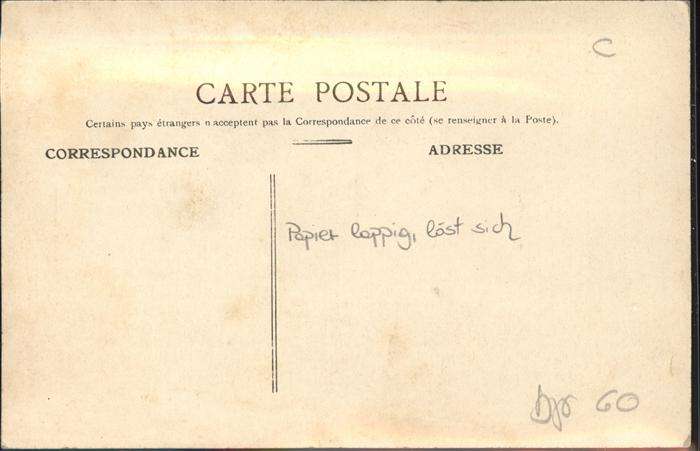 C
CARTE POSTALE
Certains pays étrangers n'acceptent pas la Correspondance de ce côté (se renseigner à la Poste).
CORRESPONDANCE
ADRESSE
Papier lappig, löst sich
60